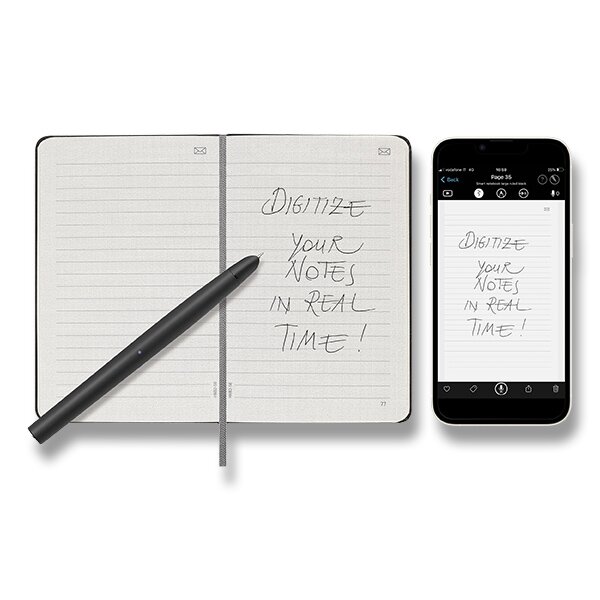 DIGITIZE
YOUR
NOTES
IN REAL
TIME!
77
vodafone IT 4G
10:59
25%
Back
Page 35
DIGITIZE
YOUR
NOTES
IN REAL
TIME!